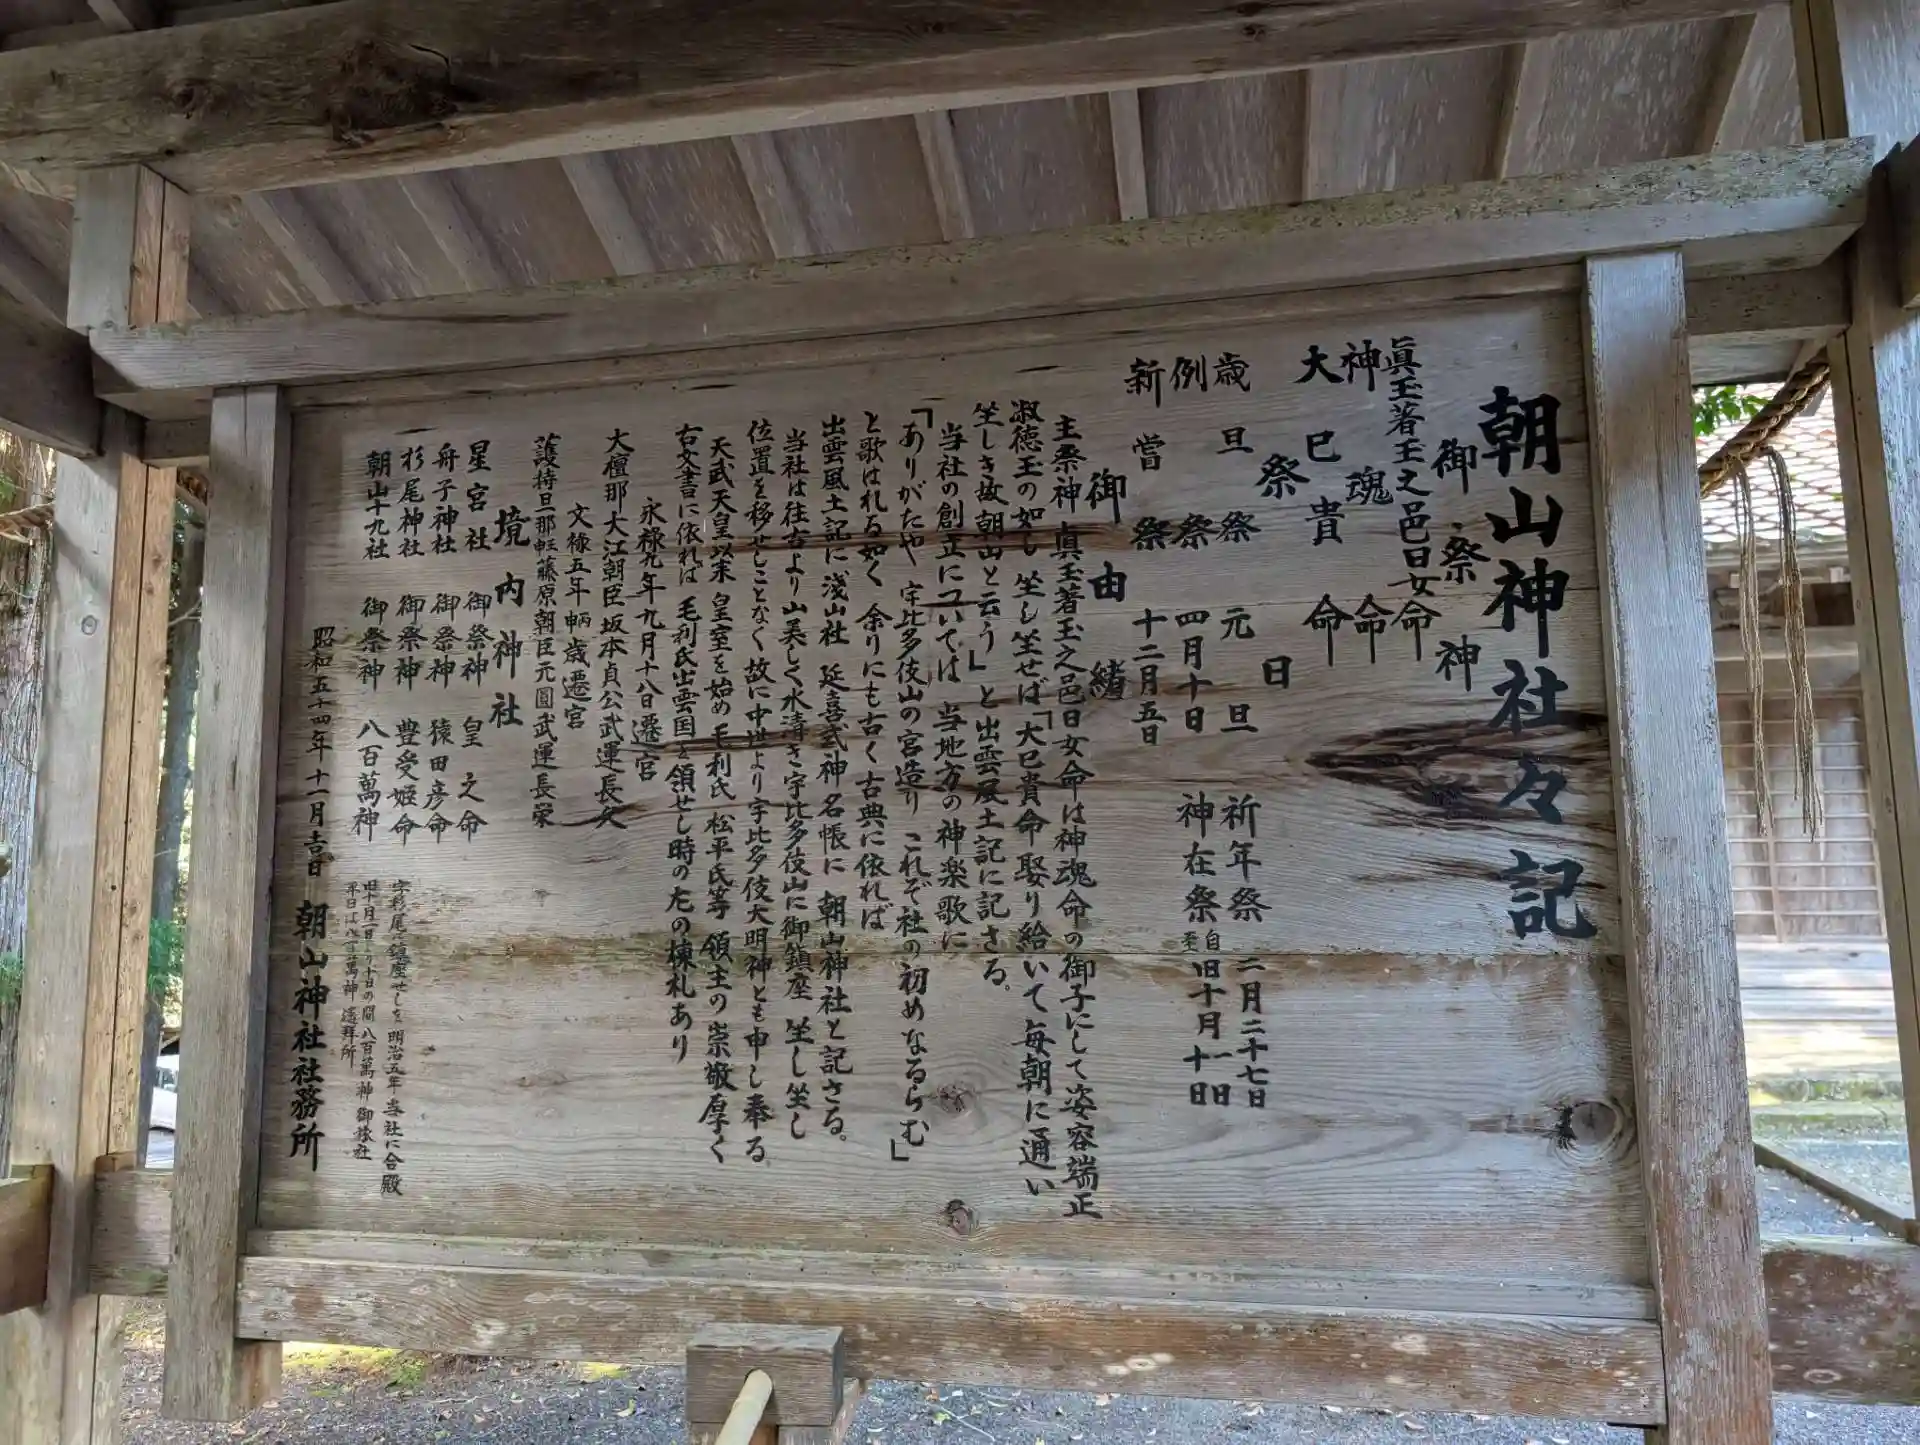 朝山神社々記
御祭神
眞玉著玉之邑日女命
神魂命
大已貴命
祭日
歳旦祭 元旦 祈年祭 二月二十七日
例祭 四月十日 神在祭 自旧十月一日 至十日
新嘗祭 十二月五日
御由緒
主祭神眞玉著玉之邑日女命は神魂命の御子にして姿容端正
淑徳玉の如し 坐し坐せば「大已貴命娶り給いて毎朝に通い
坐しき故朝山と云う」と出雲風土記に記さる。
当社の創立については 当地方の神楽歌に
「ありがたや 宇比多伎山の宮造り これぞ社の初めなるらむ」
と歌はれる如く 余りにも古く古典に依れば
出雲風土記に浅山社 延喜式神名帳に 朝山神社と記さる。
当社は往古より山美しく水清き宇比多伎山に御鎮座 坐し坐し
位置を移せしことなく故に中世より宇比多伎大明神とも申し奉る
天武天皇以来 皇室を始め毛利氏 松平氏等 領主の崇敬厚く
古文書に依れば 毛利氏出雲国を領せし時の左の棟札あり
永禄九年九月十八日遷宮
大檀那大江朝臣坂本貞公武運長久
文禄五年丙申歳遷宮
護持旦那 藤原朝臣元圓武運長栄
境内神社
星宮社 御祭神 皇之命
舟子神社 御祭神 猿田彦命
杉尾神社 御祭神 豊受姫命 字杉尾に鎮座せしを 明治五年 当社に合殿
朝山十九社 御祭神 八百萬神 旧十月一日より十日の間 八百萬神 御宿社 平日は 八百萬神 遙拜所
昭和五十四年十一月吉日 朝山神社社務所